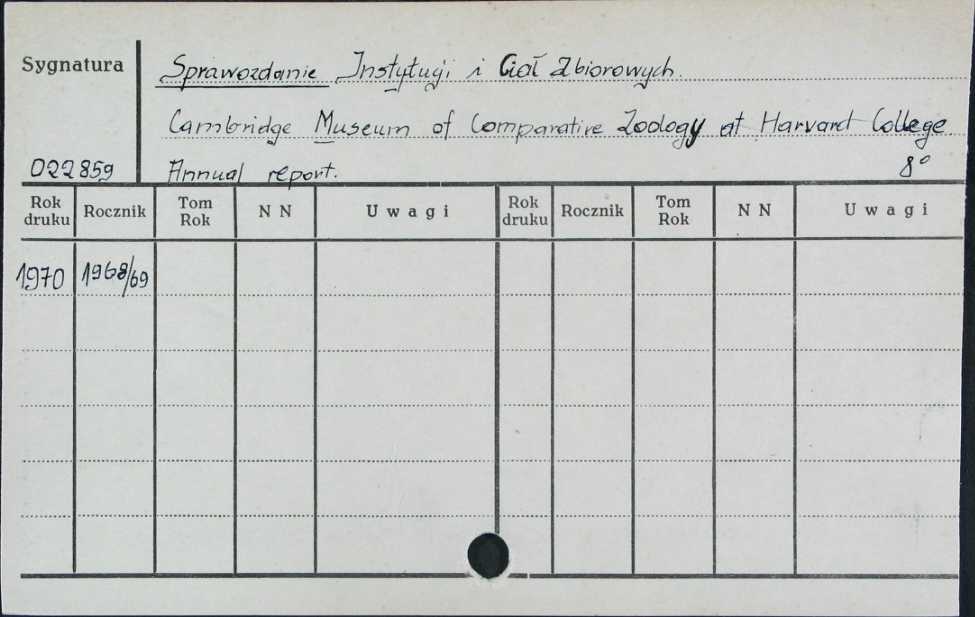 Sygnatura
Sprawozdanie Instytucji i Ciał Zbiorowych.
Cambridge Museum of Comparative Zoology at Harvard College
022859 Annual report. 8°
Rok druku Rocznik Tom Rok N N Uwagi Rok druku Rocznik Tom Rok N N Uwagi
1970 1968/69